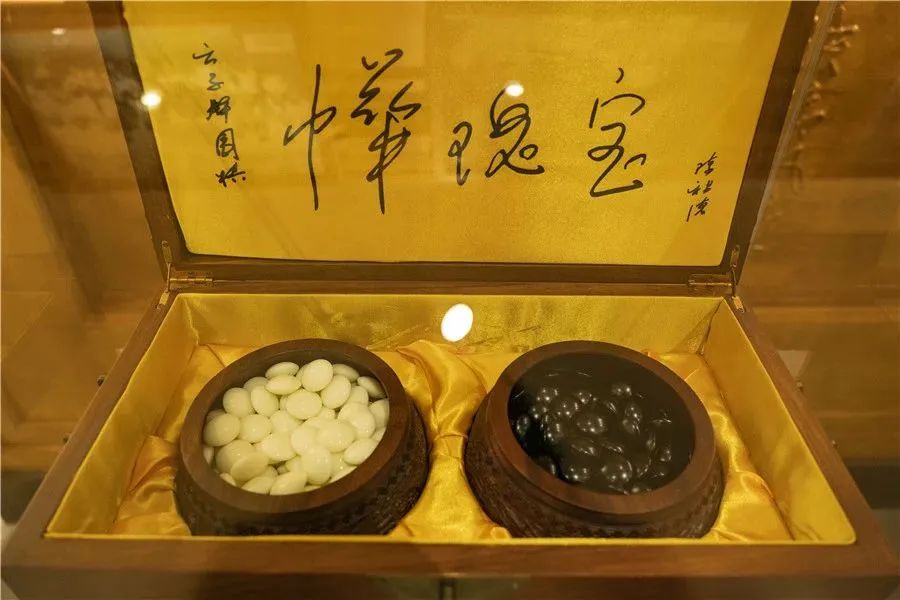 云子牌围棋
中華瑰宝
陈祖德